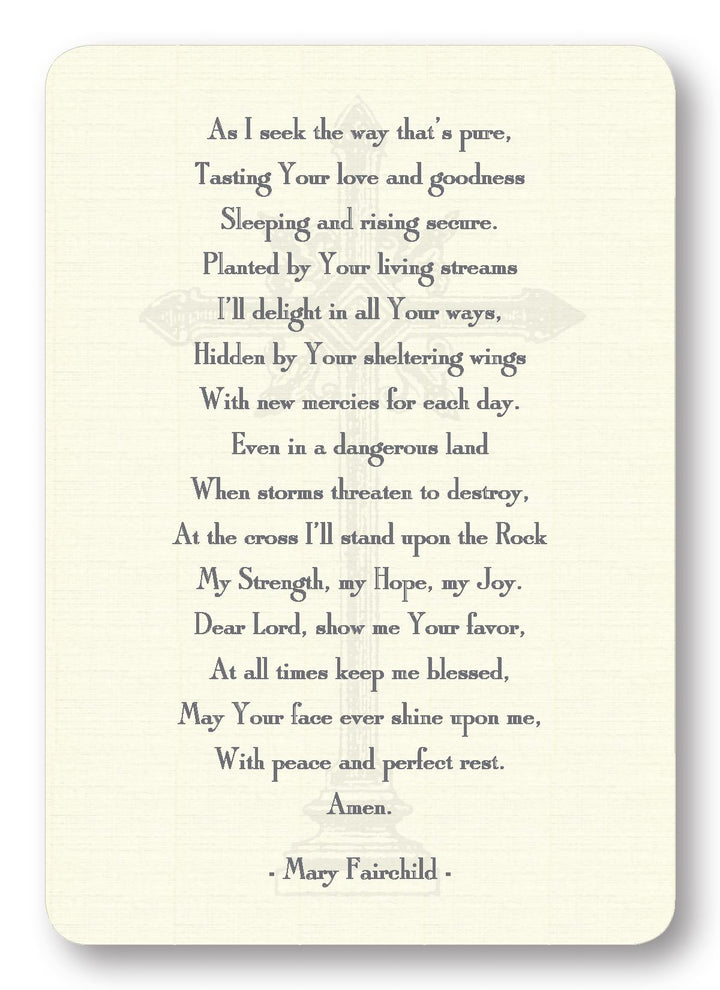 As I seek the way that's pure,
Tasting Your love and goodness
Sleeping and rising secure.
Planted by Your living streams
I'll delight in all Your ways,
Hidden by Your sheltering wings
With new mercies for each day.
Even in a dangerous land
When storms threaten to destroy,
At the cross I'll stand upon the Rock
My Strength, my Hope, my Joy.
Dear Lord, show me Your favor,
At all times keep me blessed,
May Your face ever shine upon me,
With peace and perfect rest.
Amen.
- Mary Fairchild -